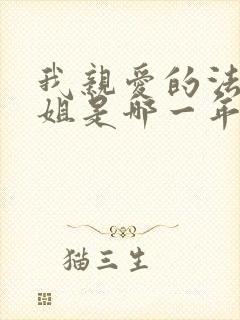 我親愛的法
姐是哪一年
猫三生